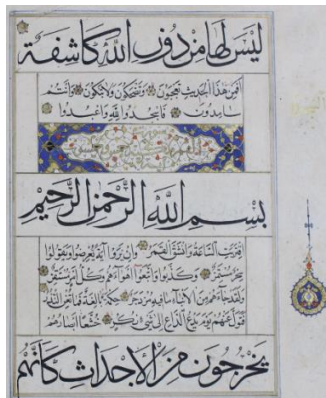 ليس لها من دون الله كاشفة
أفمن هذا الحديث تعجبون وتضحكون ولا تبكون وأنتم
سامدون فاسجدوا لله واعبدوا
بسم الله الرحمن الرحيم
اقتربت الساعة وانشق القمر وإن يروا آية يعرضوا ويقولوا
سحر مستمر وكذبوا واتبعوا أهواءهم وكل أمر مستقر
ولقد جاءهم من الأنباء ما فيه مزدجر حكمة بالغة فما تغن النذر
فتول عنهم يوم يدع الداع إلى شيء نكر خشعا أبصارهم
يخرجون من الأجداث كأنهم